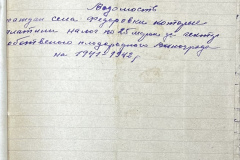 Ведомость
граждан села Федоровки которые
платили налог по 25 марок за гектар
собственного плодородного винограда
на 1941-1942 г